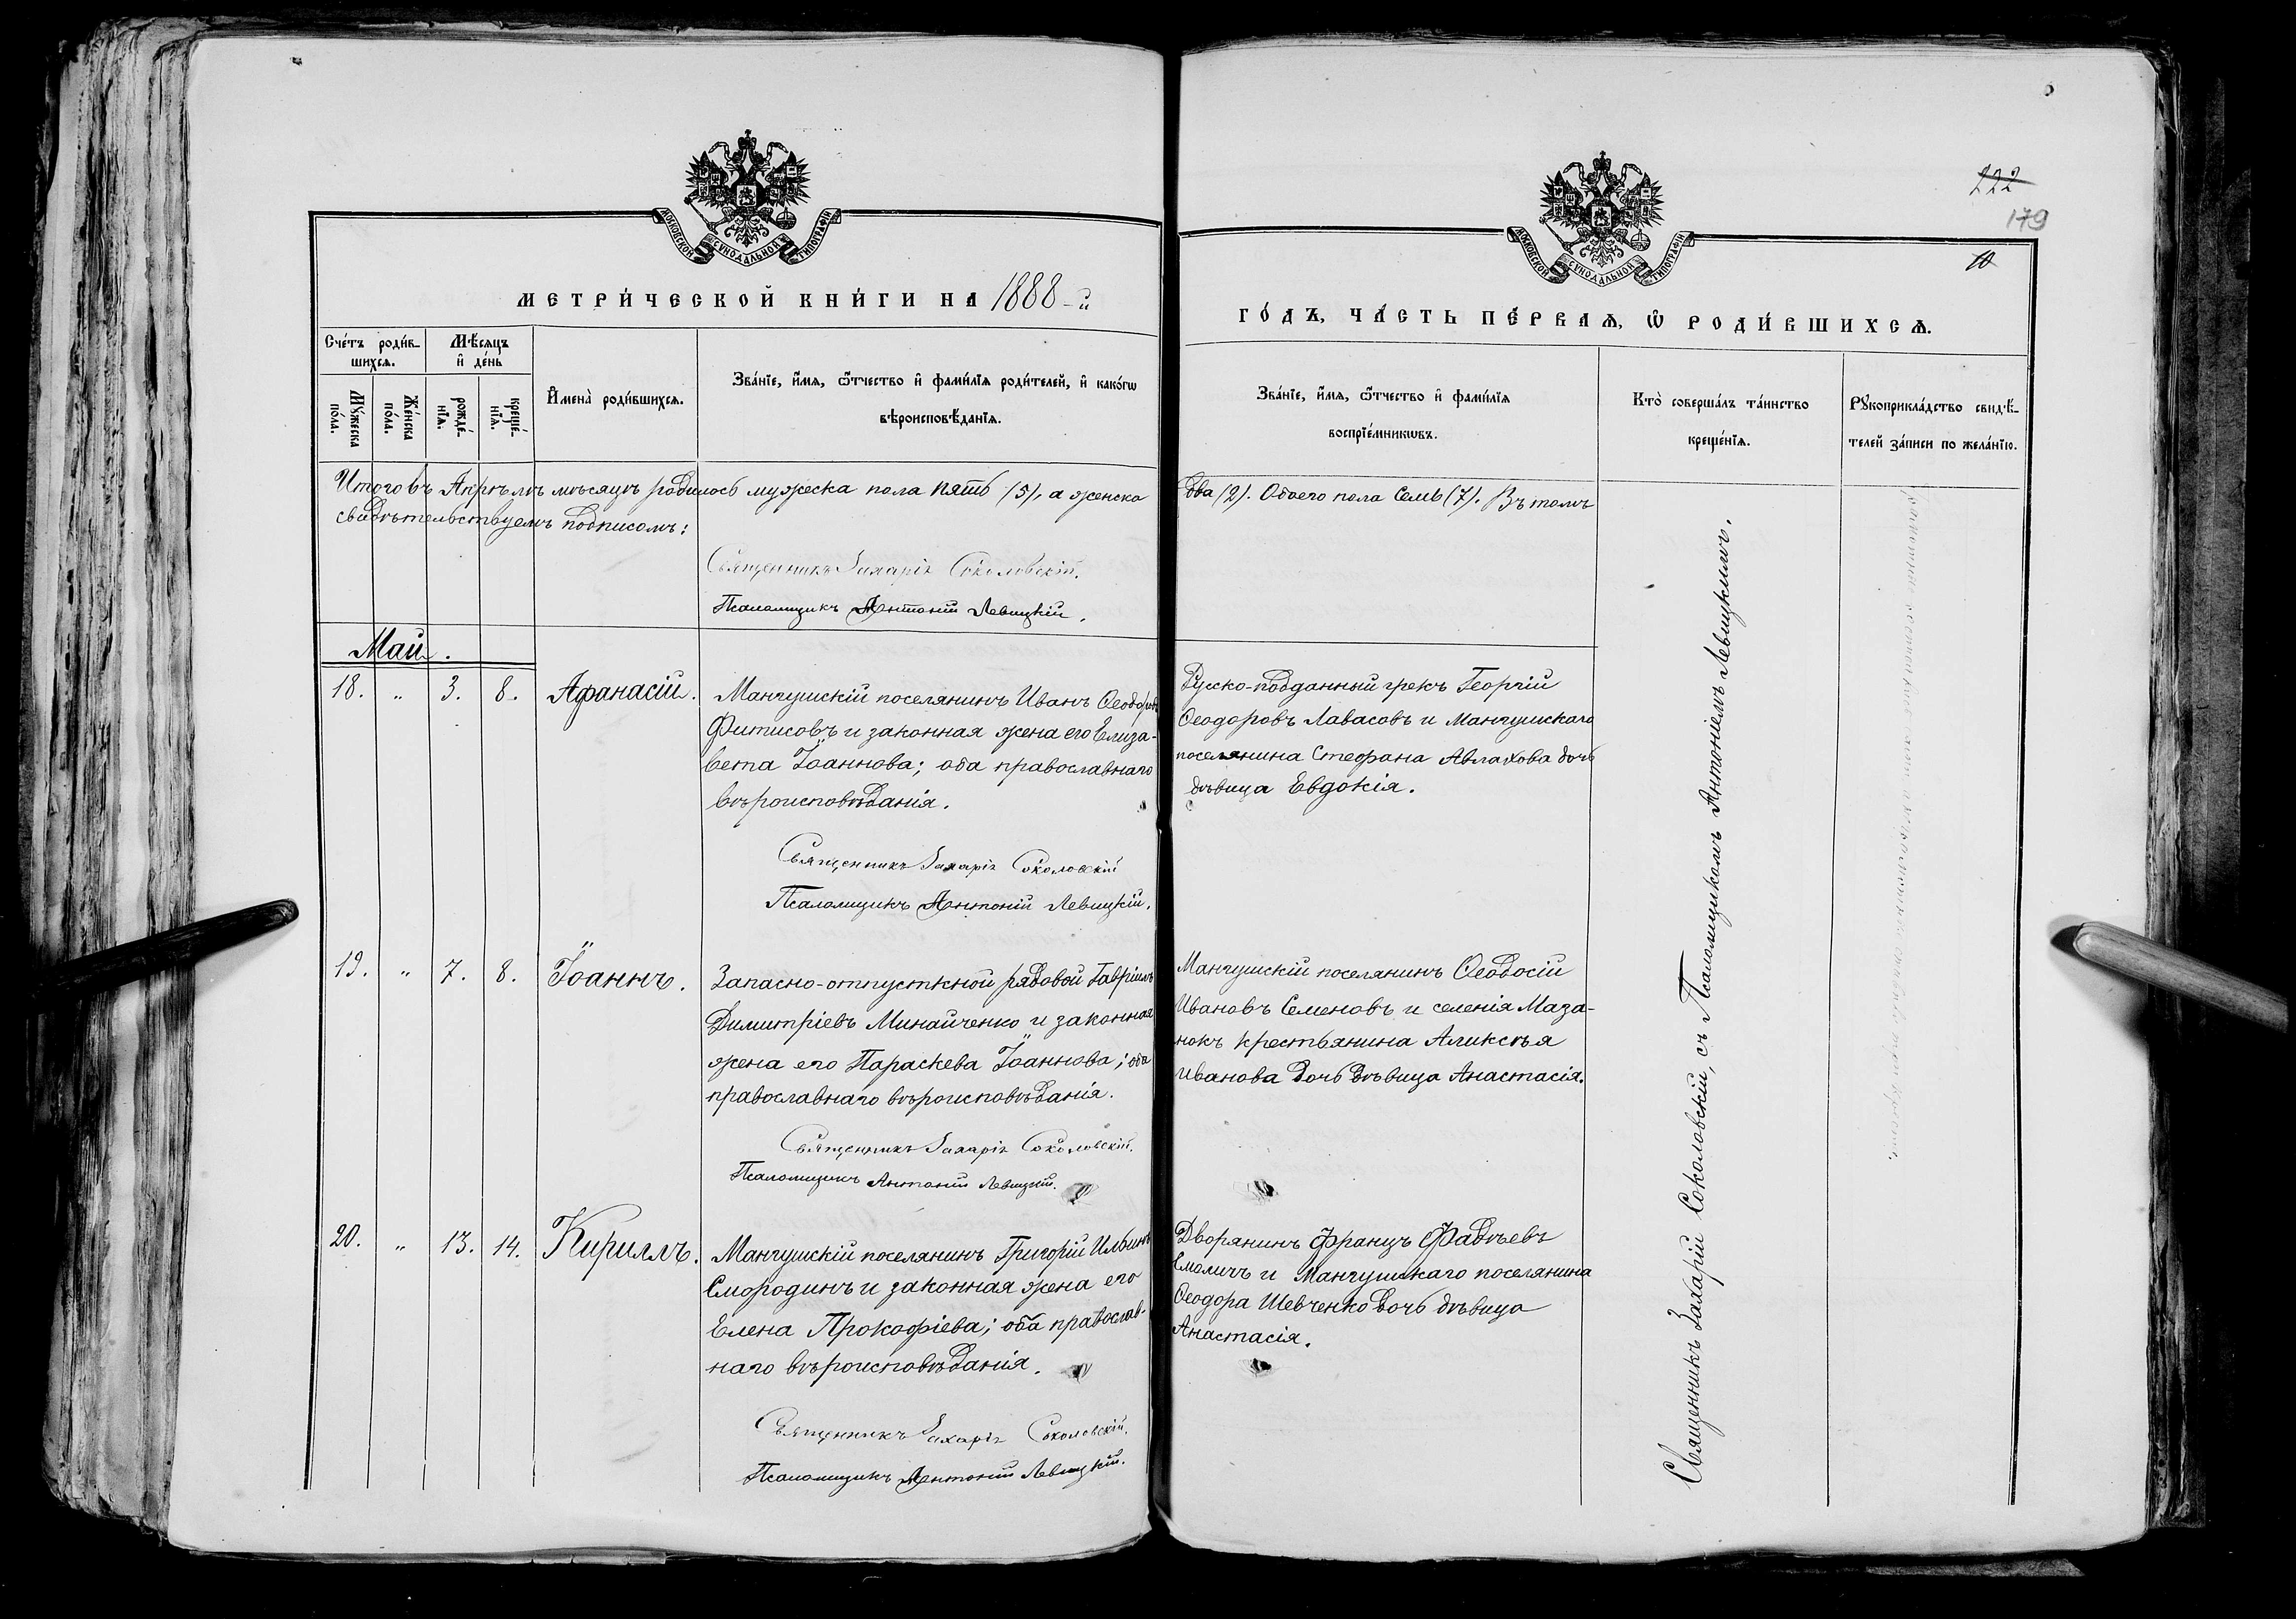 МОСКОВСКОЙ СУНОДАЛЬНОЙ ТИПОГРАФІИ
МЕТРИ́ЧЕСКОЙ КНИ́ГИ НА 1888-й
Сче́тъ роди́в-
шихся.
Мѣ́сяцъ
и҆ де́нь
Мꙋ́жеска
по́ла.
Же́нска
по́ла.
рожде́-
нїя.
креще́-
нїя.
И҆мена̀ роди́вшихся.
Зва́нїе, и҆́мя, ѻ҆́тчество и҆ фами́лїя роди́телей, и҆ како́гѡ
вѣроисповѣ́данїя.
Итого въ Апрѣлѣ мѣсяцѣ родилось мужеска пола пять (5), а женска
свидѣтельствуемъ подписомъ:
Священникъ Захарій Соколовскій.
Псаломщикъ Антоній Левицкій.
Май.
18. " 3. 8. Афанасій.
Мангушскій поселянинъ Иванъ Ѳеодоровъ
Фитисовъ и законная жена его Елиза-
вета Іоаннова; оба православнаго
вѣроисповѣданія.
Священникъ Захарій Соколовскій
Псаломщикъ Антоній Левицкій.
19. " 7. 8. Іоаннъ.
Запасно-отпускной рядовой Гавріилъ
Димитріевъ Минайченко и законная
жена его Параскева Іоаннова; оба
православнаго вѣроисповѣданія.
Священникъ Захарій Соколовскій.
Псаломщикъ Антоній Левицкій.
20. " 13. 14. Кириллъ.
Мангушскій поселянинъ Григорій Ильинъ
Смородинъ и законная жена его
Елена Прокофіева; оба православ-
наго вѣроисповѣданія.
Священникъ Захарій Соколовскій.
Псаломщикъ Антоній Левицкій.
222
179
10
МОСКОВСКОЙ СУНОДАЛЬНОЙ ТИПОГРАФІИ
ГО́ДЪ, ЧА́СТЬ ПЕ́РВАЯ, Ѡ҆ РОДИ́ВШИХСЯ.
Зва́нїе, и҆́мя, ѻ҆́тчество и҆ фами́лїя
воспрїе́мникѡвъ.
Кто̀ соверша́лъ та́инство
креще́нїя.
Рꙋкоприкла́дство свидѣ́-
телей за́писи по жела́нїю.
два (2). Обоего пола Семь (7). Въ томъ
Русско-подданный грекъ Георгій
Ѳеодоровъ Лавасовъ и Мангушскаго
поселянина Стефана Авлахова дочь
дѣвица Евдокія.
Мангушскій поселянинъ Ѳеодосій
Ивановъ Семеновъ и селенія Маза-
нокъ крестьянина Аликсѣя
Иванова дочь дѣвица Анастасія.
Дворянинъ Францъ Фадѣевъ
Емоличъ и Мангушскаго поселянина
Ѳеодора Шевченко дочь дѣвица
Анастасія.
Священникъ Захарій Соколовскій, съ Псаломщикомъ Антоніемъ Левицкимъ.